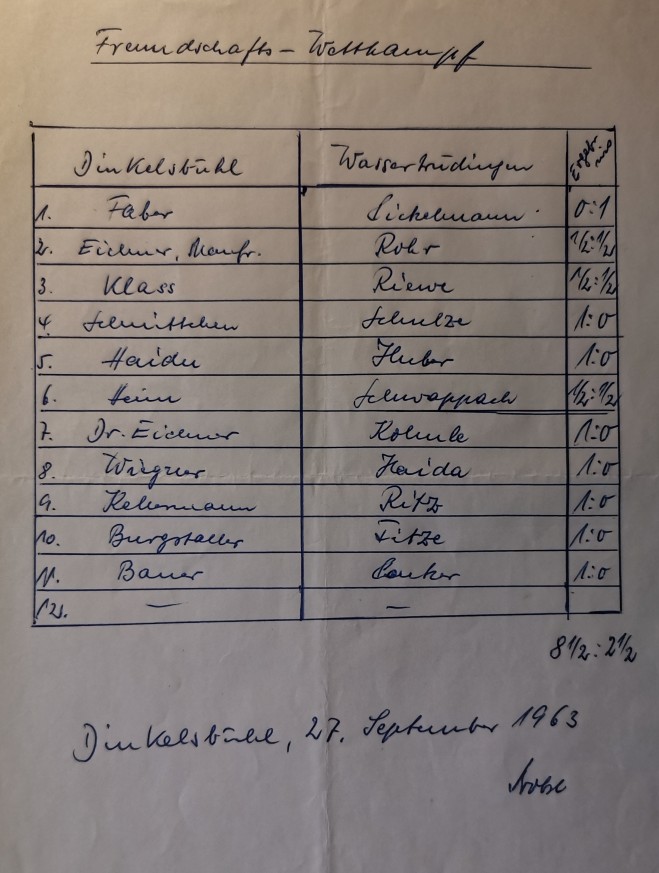 Freundschafts-Wettkampf
Dinkelsbühl Wassertrüdingen Ergebnis
1. Faber Sickelmann 0:1
2. Eichner, Manfr. Rohr 1/2:1/2
3. Klass Riewe 1/2:1/2
4. Schulze 1:0
5. Haidu Huber 1:0
6. Heim Schwappach 1/2:1/2
7. Dr. Eichner 1:0
8. Haida 1:0
9. Kellermann Ritz 1:0
10. Burgstaller Titze 1:0
11. Bauer 1:0
12. — —
8 1/2:2 1/2
Dinkelsbühl, 27. September 1963